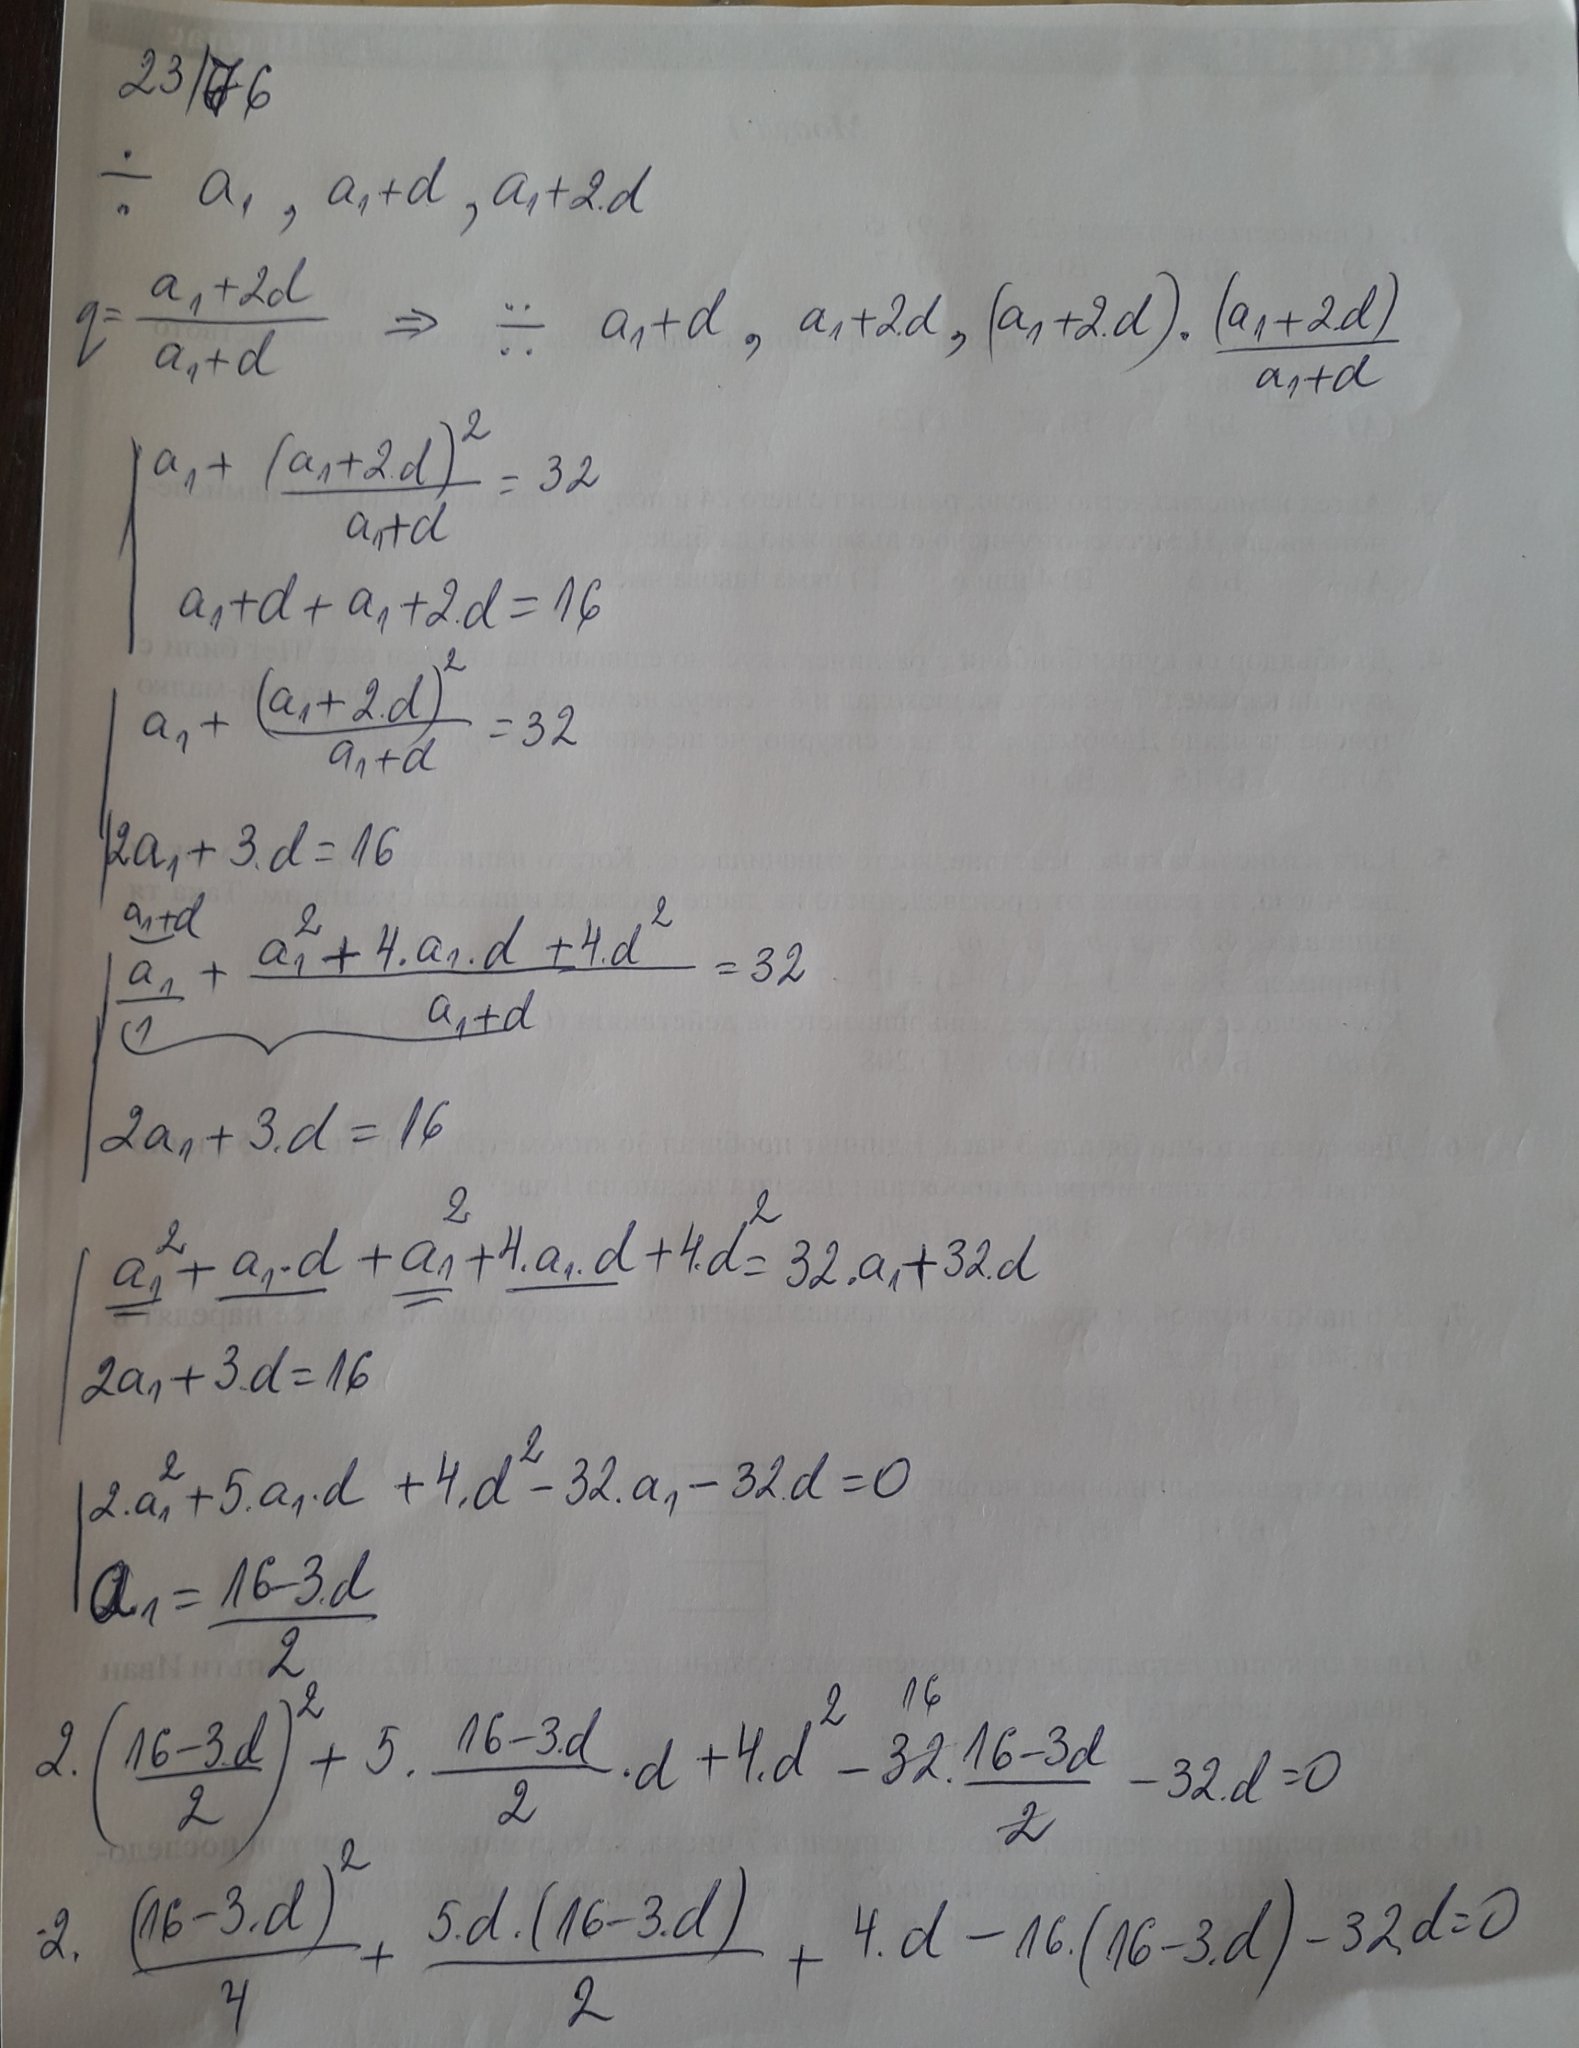 23/76
÷ a₁, a₁+d, a₁+2.d
q = (a₁+2d)/(a₁+d) ⇒ ∺ a₁+d, a₁+2.d, (a₁+2.d).(a₁+2.d)/(a₁+d)
a₁ + (a₁+2.d)²/(a₁+d) = 32
a₁+d + a₁+2.d = 16
a₁ + (a₁+2.d)²/(a₁+d) = 32
2a₁ + 3.d = 16
a₁+d
a₁/1 + (a₁² + 4.a₁.d + 4.d²)/(a₁+d) = 32
2a₁ + 3.d = 16
a₁² + a₁.d + a₁² + 4.a₁.d + 4.d² = 32.a₁ + 32.d
2a₁ + 3.d = 16
2.a₁² + 5.a₁.d + 4.d² - 32.a₁ - 32.d = 0
a₁ = (16-3.d)/2
16
2.((16-3.d)/2)² + 5.(16-3.d)/2.d + 4.d² - 32.(16-3d)/2 - 32.d = 0
2.(16-3.d)²/4 + 5.d.(16-3.d)/2 + 4.d - 16.(16-3.d) - 32.d = 0